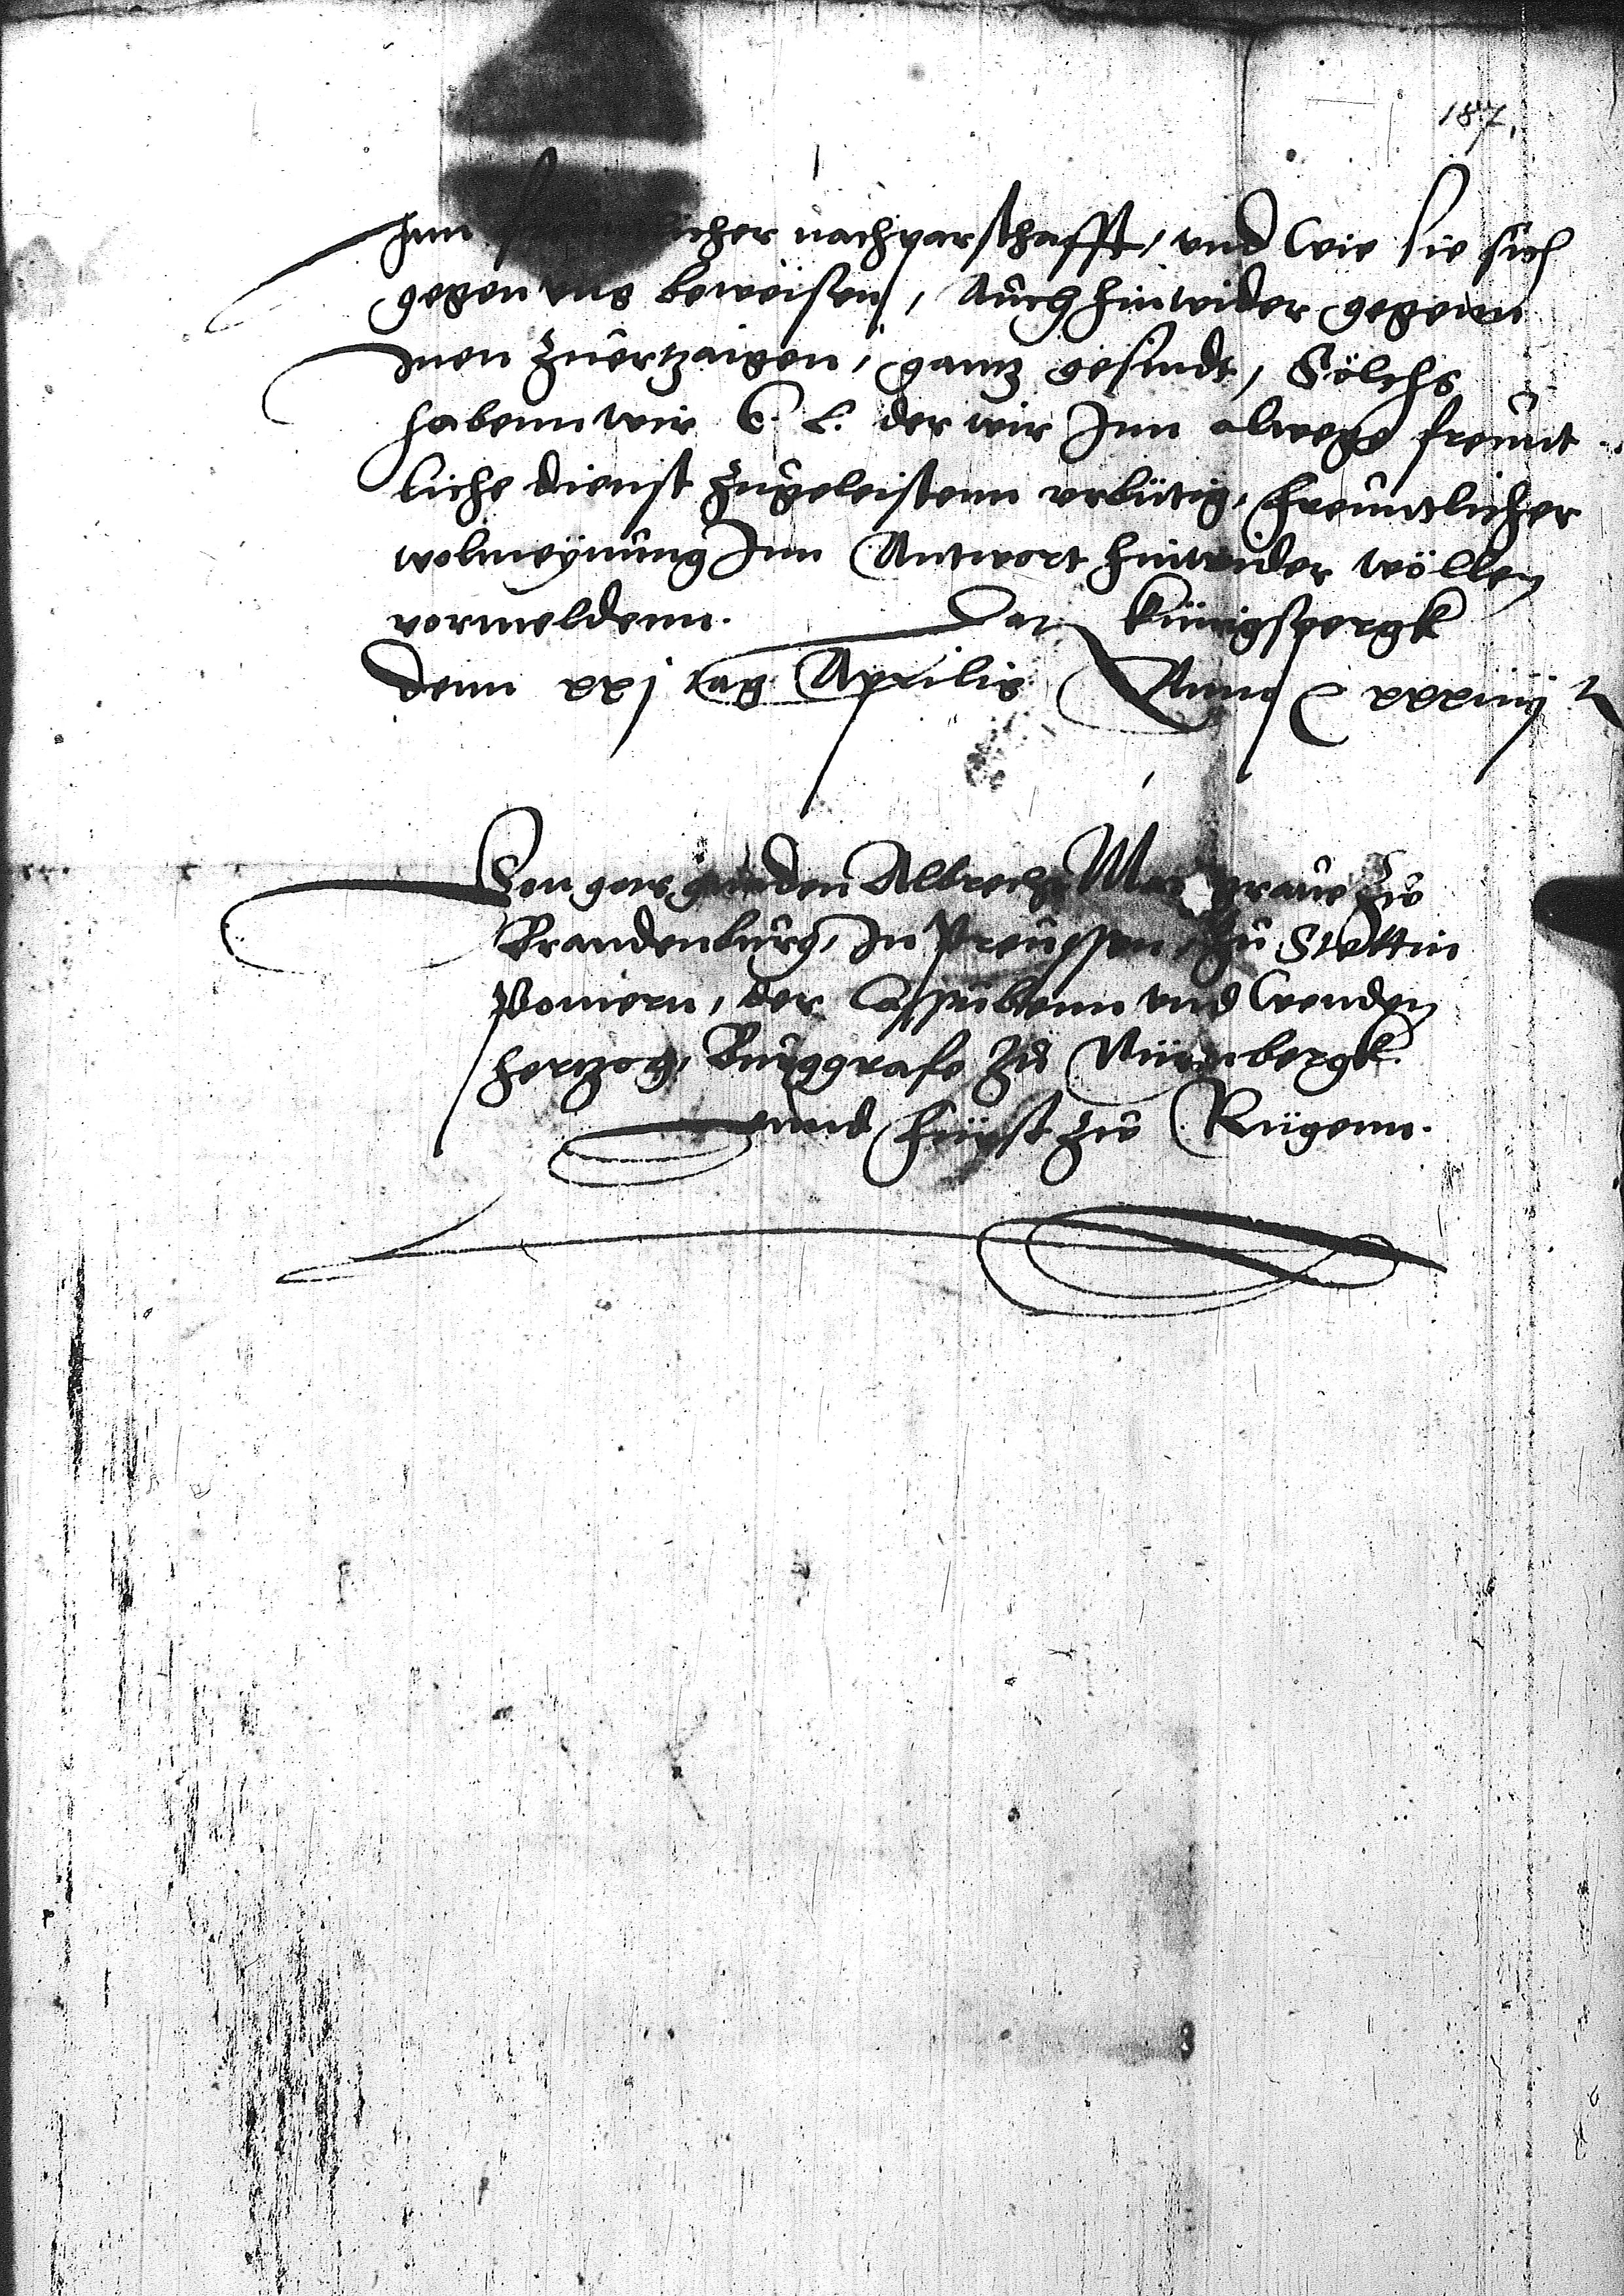 187.
Inn nachparschafft, vnd wie sie sich
gegen vns beweisen, Auch hinwider gegenn
Inen zuertzaigen, gantz gesindt, Sölchs
habenn wir E. L. der wir Inn alwege freunt
liche dienst zugeleistenn vrbüttig, freuntlicher
wolmeÿnung Inn Antwort hinwider wöllen
vormeldenn. Dat. Künigspergk
denn xxj tag Aprilis Anno xxxiiij
Von gots gnaden Albrecht Marggraue zu
Brandenburg, In Preussen, zu Stettin
Pomern, der Cassubenn vnd Wenden
hertzog, Burggrafe zu Nürmbergk
vnnd fürst zu Rügenn.